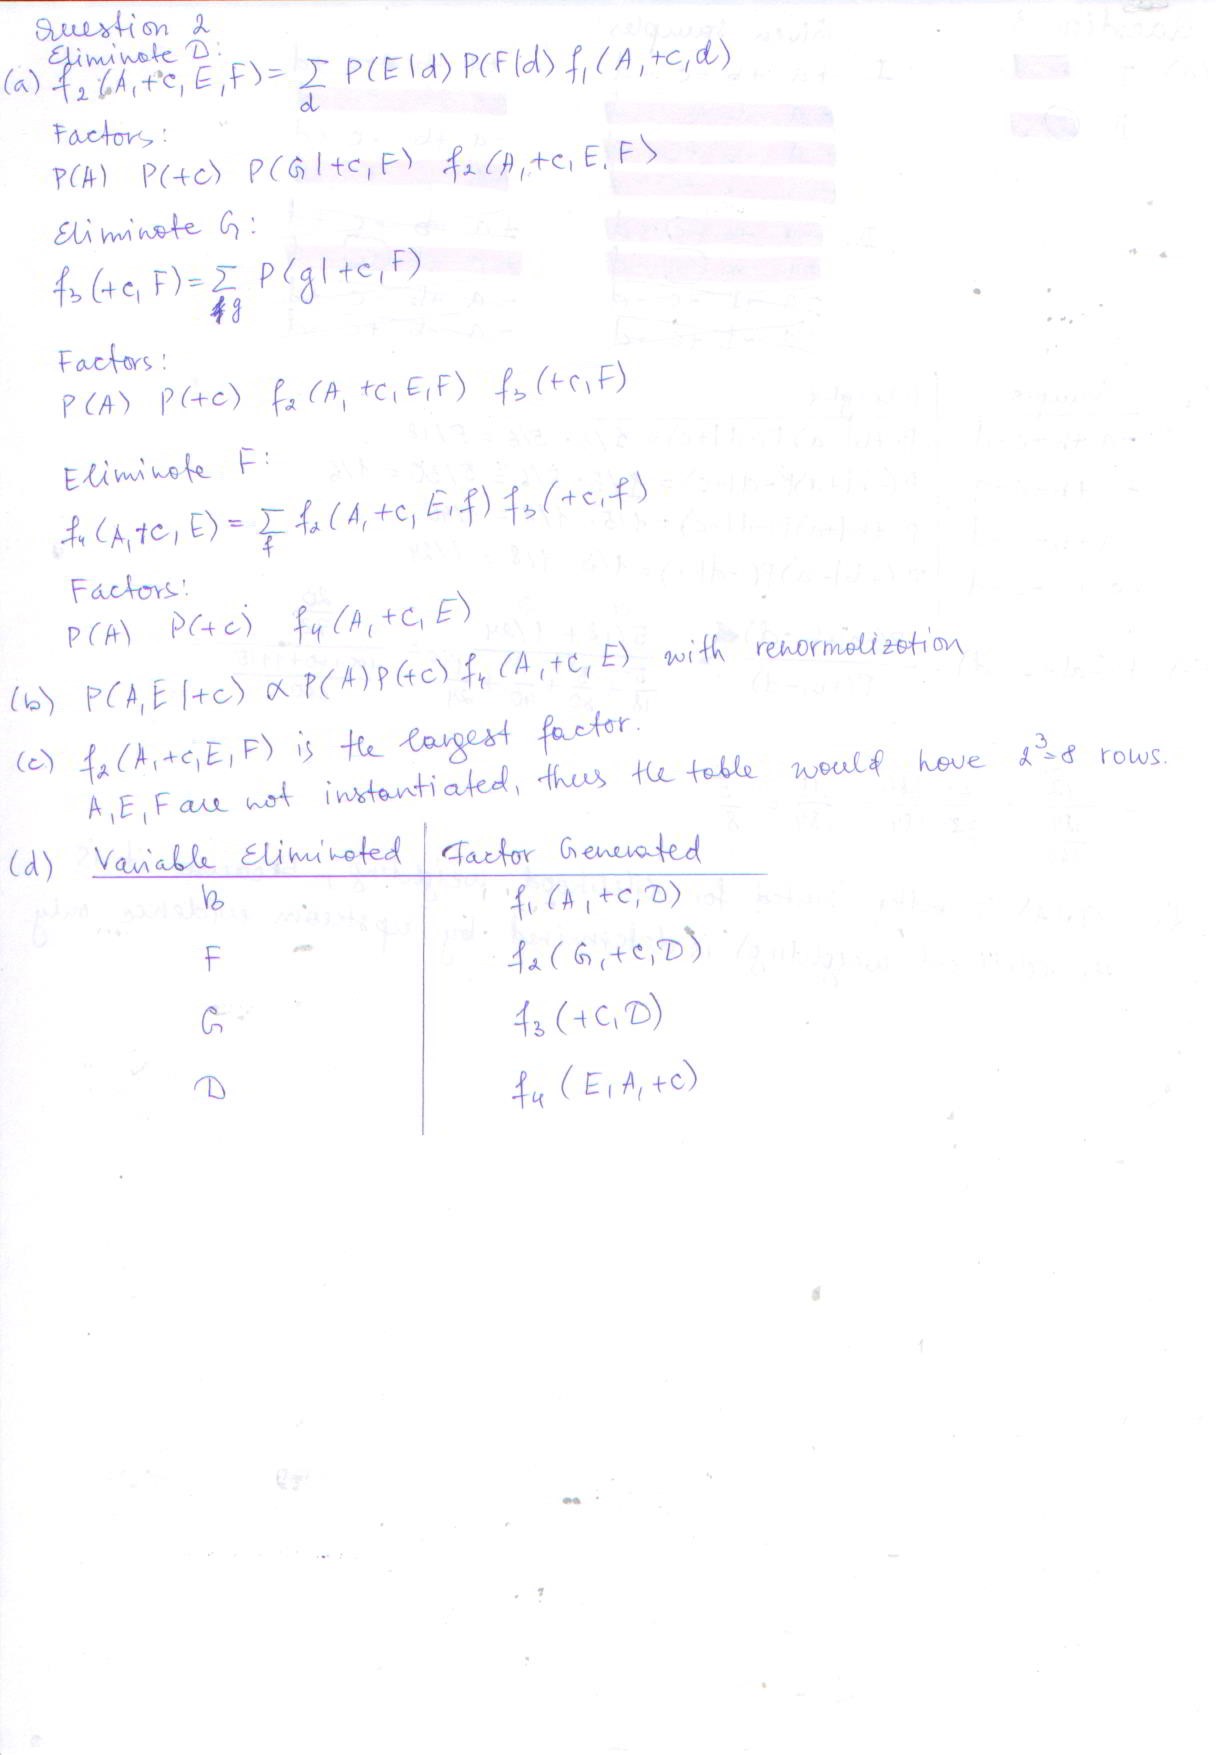 Question 2
Eliminate D:
(a) f₂(A,+c,E,F) = Σ_d P(E|d) P(F|d) f₁(A,+c,d)
Factors:
P(A) P(+c) P(G|+c,F) f₂(A,+c,E,F)
Eliminate G:
f₃(+c,F) = Σ_g P(g|+c,F)
Factors:
P(A) P(+c) f₂(A,+c,E,F) f₃(+c,F)
Eliminate F:
f₄(A,+c,E) = Σ_f f₂(A,+c,E,f) f₃(+c,f)
Factors:
P(A) P(+c) f₄(A,+c,E)
(b) P(A,E|+c) ∝ P(A)P(+c) f₄(A,+c,E) with renormalization
(c) f₂(A,+c,E,F) is the largest factor.
A,E,F are not instantiated, thus the table would have 2³=8 rows.
(d) Variable Eliminated Factor Generated
B f₁(A,+c,D)
F f₂(G,+c,D)
G f₃(+c,D)
D f₄(E,A,+c)